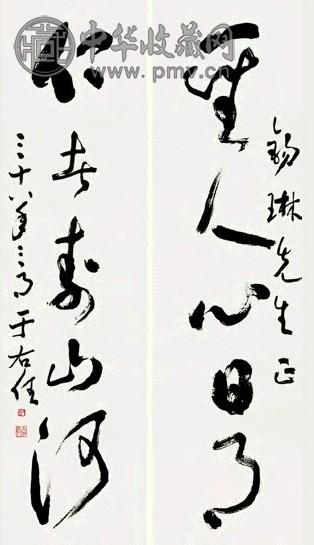 中华收藏网
www.pmv.cn
錫琳先生正
聖人心日月
仁者壽山河
三十八年三月于右任